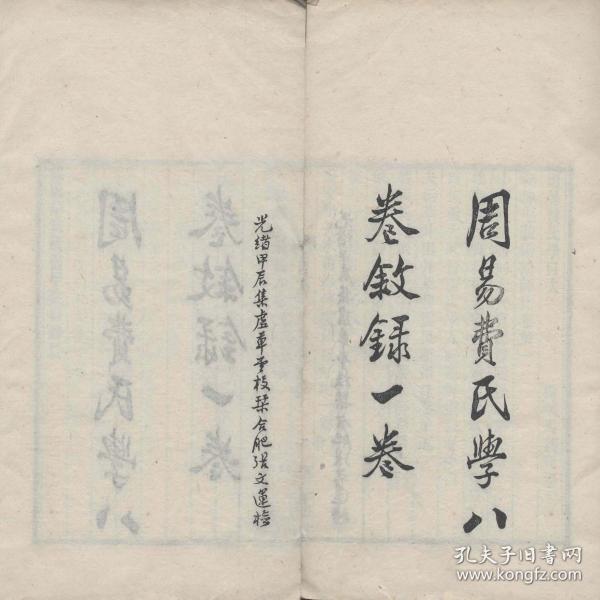 周易費氏學八
卷敘録一卷
光緒甲辰集虛草堂校栞合肥張文運檢
孔夫子旧书网
www.kongfz.com